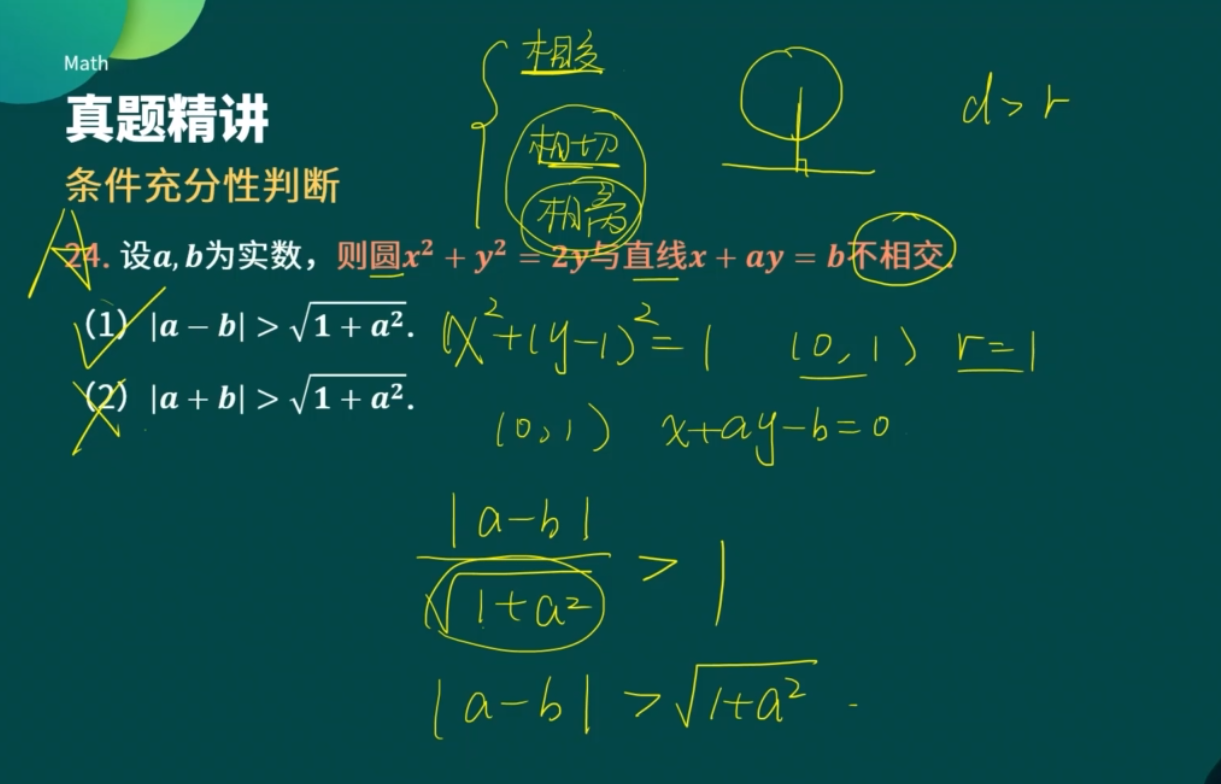 Math
真题精讲
条件充分性判断
相交
相切
相离
d>r
A
24. 设a, b为实数，则圆x² + y² = 2y与直线x + ay = b不相交.
（1）|a − b| > √(1 + a²).
（2）|a + b| > √(1 + a²).
x²+(y-1)²=1 (0,1) r=1
(0,1) x+ay-b=0
|a-b|/√(1+a²) > 1
|a-b| > √(1+a²)